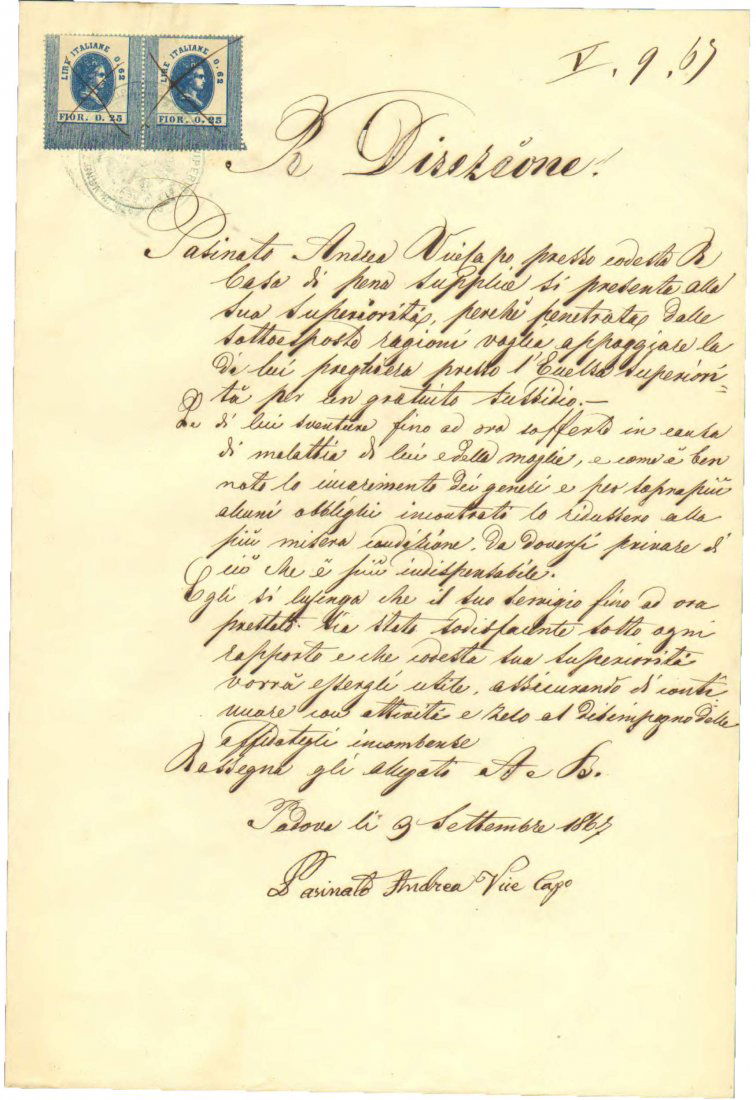 LIRE ITALIANE 0.62
FIOR. 0.25
LIRE ITALIANE 0.62
FIOR. 0.25
V. 9. 67
R Direzione.
Pasinato Andrea Vicecapo presso codesta R
Casa di pena supplica si presenta alla
sua superiorità, perchè penetrata dalle
sottoesposte ragioni voglia appoggiare la
di lui preghiera presso l'Eccelsa superiori=
tà per un gratuito sussidio.—
Le di lui sventure fino ad ora sofferte in causa
di malattia di lui e della moglie, e come è ben
noto lo incarimento dei generi e per soprapiù
alcuni obblighi incontrati lo ridussero alla
più misera condizione, da doversi privare di
ciò che è più indispensabile.
Egli si lusinga che il suo servigio fino ad ora
prestato sia stato sodisfacente sotto ogni
rapporto e che codesta sua superiorità
vorrà essergli utile, assicurando di conti
nuare con attività e zelo al disimpegno delle
affidategli incombense
Rassegna gli allegato A e B.
Padova li 9 Settembre 1867
Pasinato Andrea Vice Capo